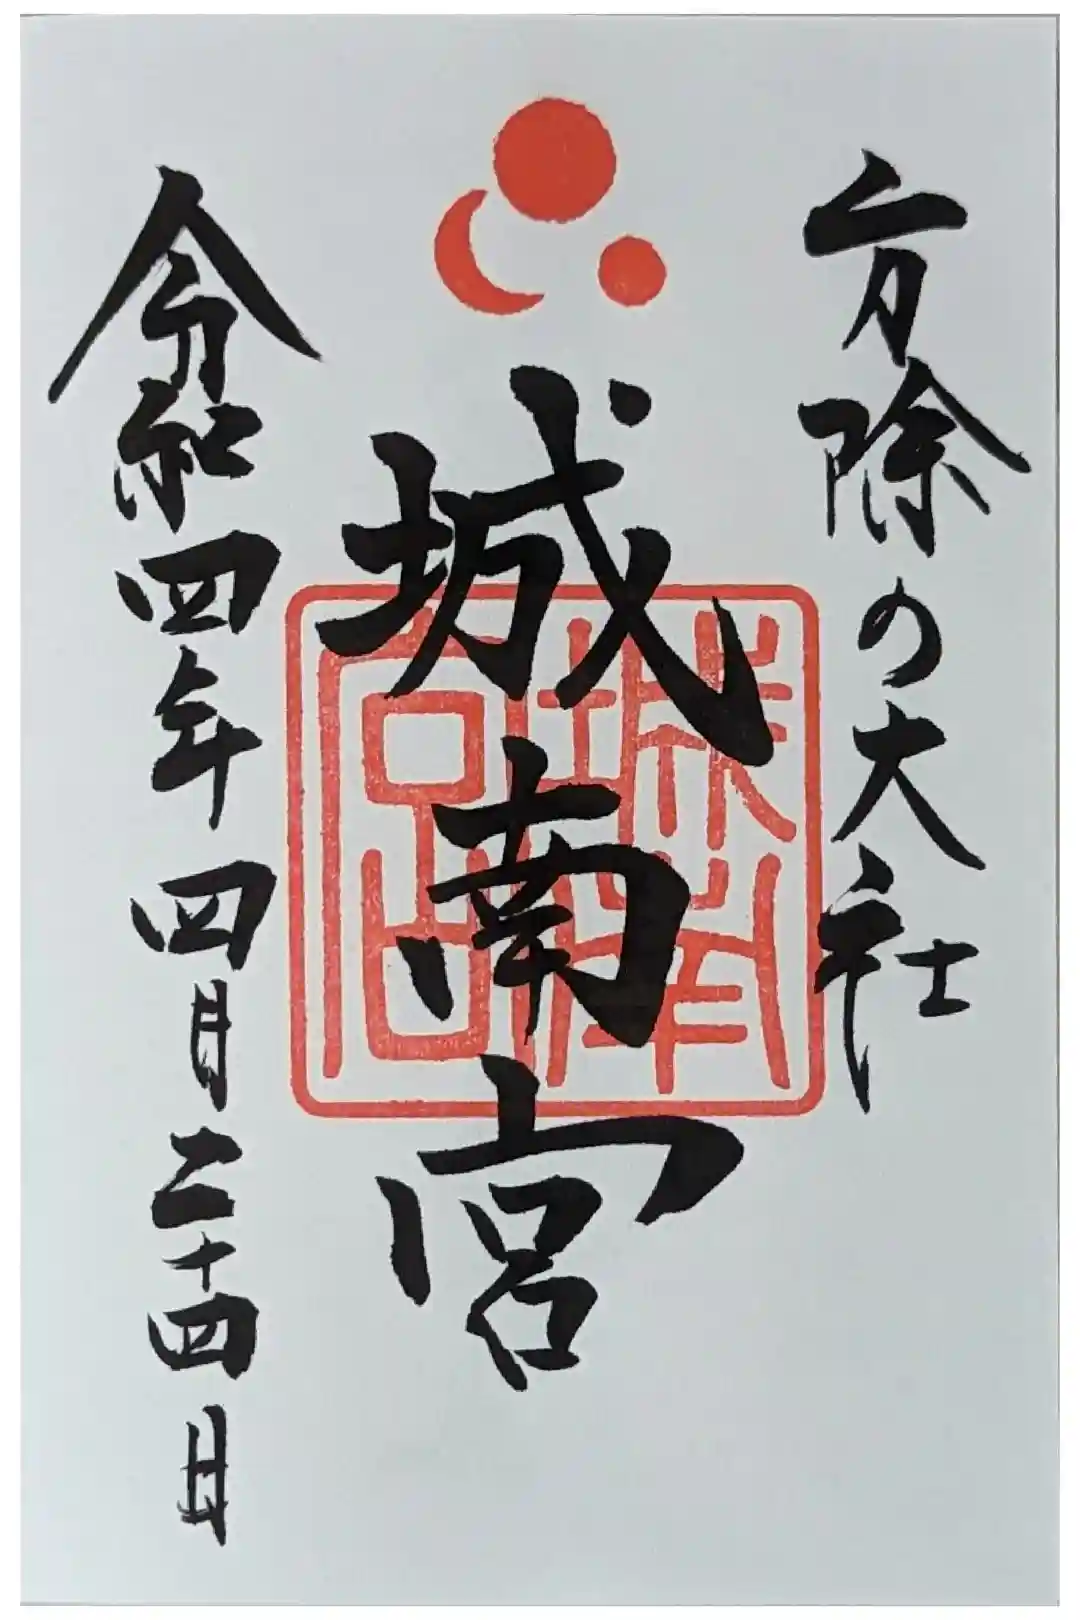 方除の大社
城南宮
令和四年四月二十四日